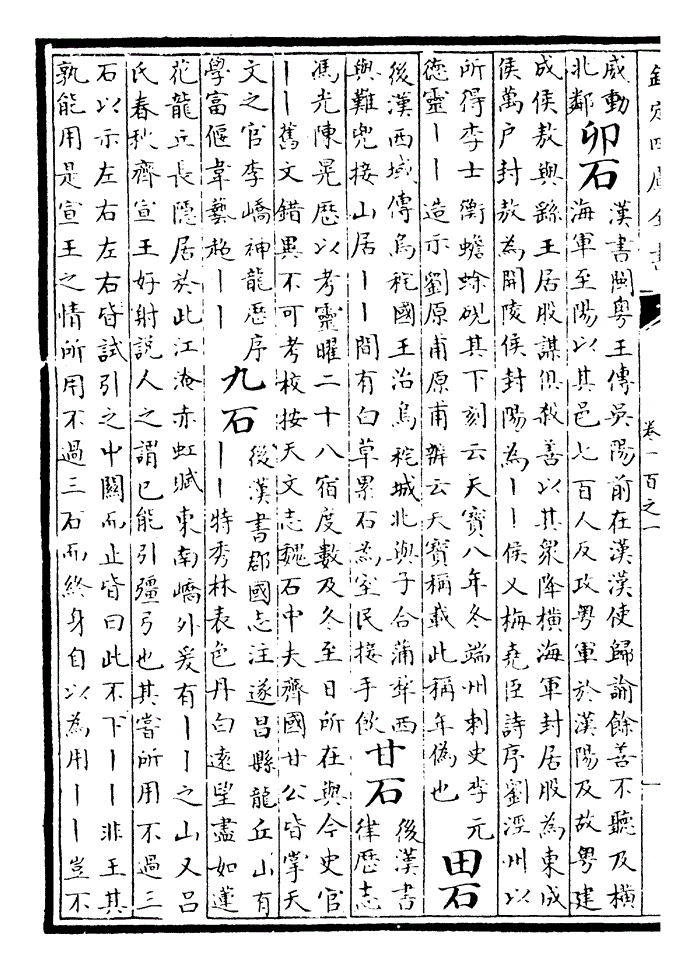 欽定四庫全書 卷一百之一
威動
北鄰
卯石
漢書閩粤王傳吳陽前在漢漢使歸諭餘善不聽及橫
海軍至陽以其邑七百人反攻粤軍於漢陽及故粤建
成侯敖與繇王居股謀俱殺善以其衆降橫海軍封居股為東成
侯萬户封敖為開陵侯封陽為丨丨侯又梅堯臣詩序劉涇州以
所得李士衡蟾蜍硯其下刻云天寶八年冬端州刺史李元
德靈丨丨造示劉原甫原甫辨云天寶稱載此稱年偽也
田石
後漢西域傳烏秅國王治烏秅城北與子合蒲犂西
與難兜接山居丨丨間有白草累石為室民接手飲
甘石
後漢書
律歷志
馮光陳晃歷以考靈曜二十八宿度數及冬至日所在與今史官
丨丨舊文錯異不可考校按天文志魏石申夫齊國甘公皆掌天
文之官李嶠神龍歷序
學富偓韋藝超丨丨
九石
後漢書郡國志注遂昌縣龍丘山有
丨丨特秀林表色丹白遠望盡如蓮
花龍丘長隱居於此江淹赤虹賦東南嶠外爰有丨丨之山又呂
氏春秋齊宣王好射説人之謂已能引彊弓也其嘗所用不過三
石以示左右左右皆試引之中關而止皆曰此不下丨丨非王其
孰能用是宣王之情所用不過三石而終身自以為用丨丨豈不